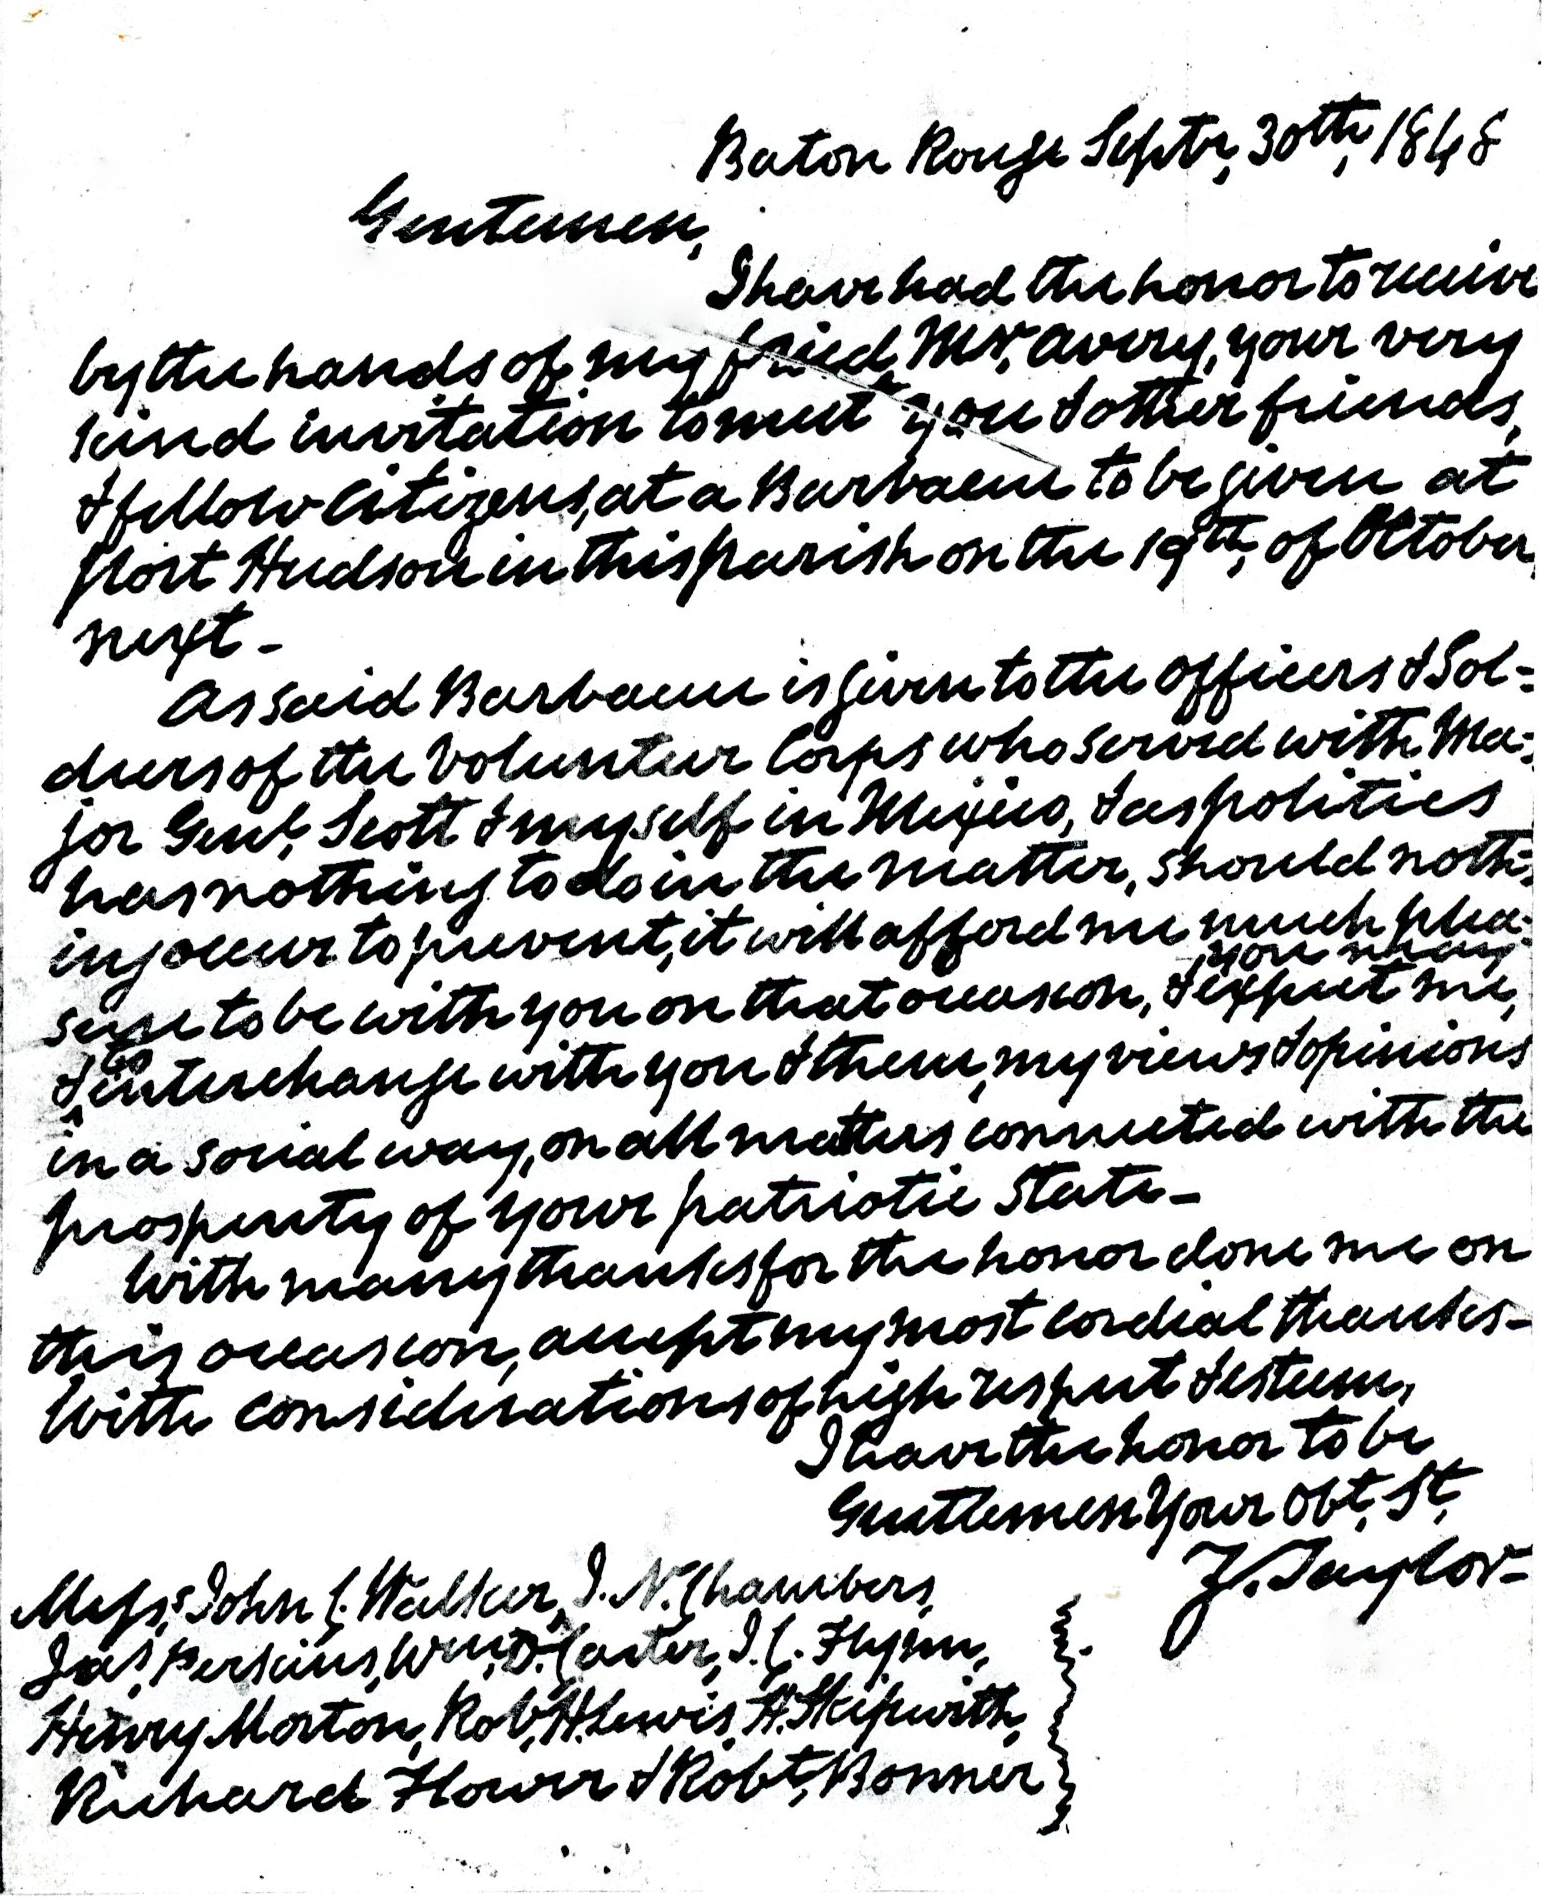 Baton Rouge Septr, 30th, 1848
Gentemen,
I have had the honor to receive
by the hands of my fried, Mr. Avery, your very
kind invitation to meet you & other friends,
& fellow citizens, at a Barbacue to be given at
Port Hudson in this parish on the 19th, of October,
next -
As said Barbacue is given to the officers & Sol=
diers of the Volunteer Corps who served with Ma=
jor Genl, Scott & myself in Mexico, & as politics
has nothing to do in the matter, should noth=
ing occur to prevent, it will afford me much plea=
you may
sure to be with you on that occasion, & expect me,
to
& interchange with you & them, my views & opinions
in a social way, on all matters connected with the
prosperity of your patriotic State -
With many thanks for the honor done me on
this occasion, accept my most cordial thanks -
With considerations of high respect & esteem,
I have the honor to be
Gentlemen Your Obt, St,
Z. Taylor -
Messrs John C. Walker, J. N. Chambers,
Jas, Perkins, Wm, D. Carter, J. C. Flynn,
Henry Morton, Rob, H. Lewis, H. Skipwith,
Richard Flower & Robt, Bonner